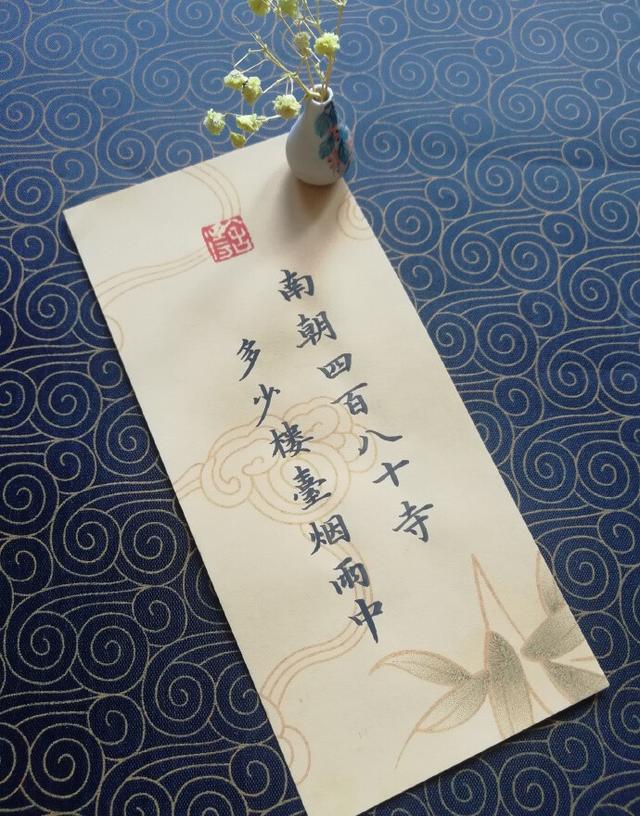 南朝四百八十寺
多少楼臺烟雨中